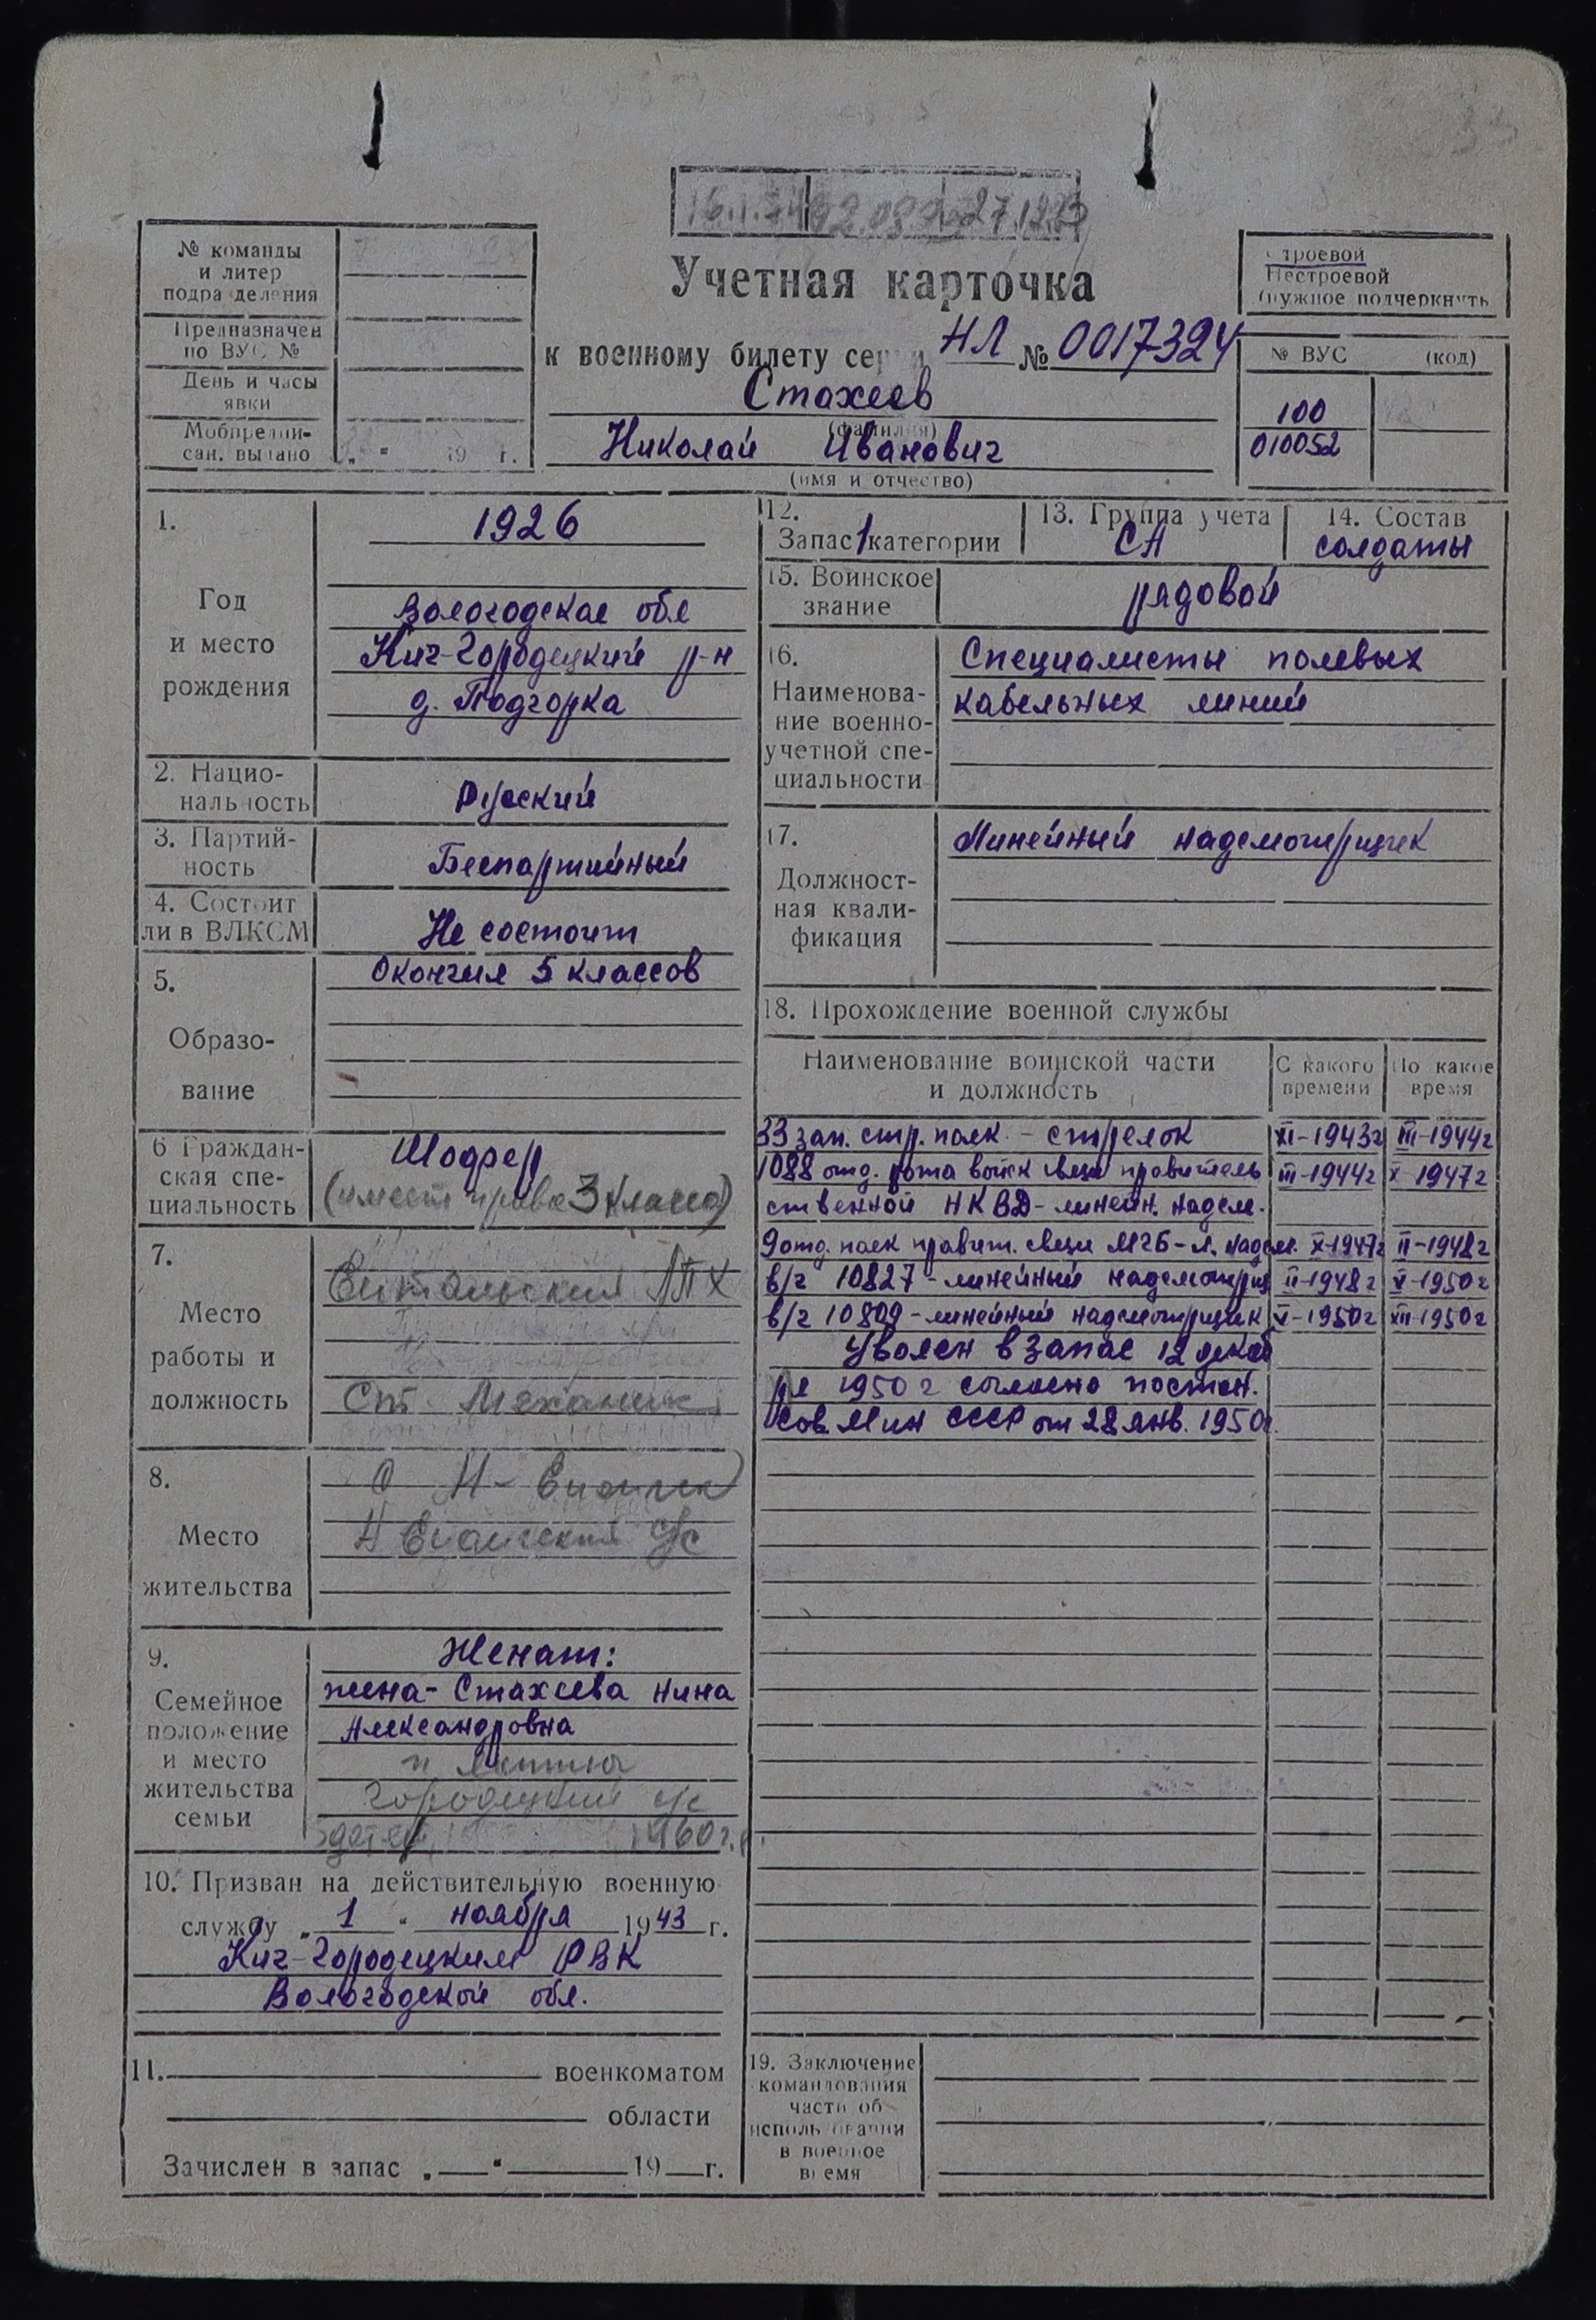 № команды
и литер
подразделения
Предназначен
по ВУС №
День и часы
явки
Мобпредпи-
сан. выдано „ “ 19 г.
Учетная карточка
к военному билету серии НЛ № 0017324
Стахеев
(фамилия)
Николай Иванович
(имя и отчество)
Строевой
Нестроевой
(нужное подчеркнуть
№ ВУС (код)
100
010052
1.
Год
и место
рождения
1926
Вологодская обл
Кич-Городецкий р-н
д. Подгорка
2. Нацио-
нальность
Русский
3. Партий-
ность
Беспартийный
4. Состоит
ли в ВЛКСМ
Не состоит
5.
Образо-
вание
Окончил 5 классов
6 Граждан-
ская спе-
циальность
Шофер
(имеет права 3 класса)
7.
Место
работы и
должность
ЛПХ
Ст. Механик
8.
Место
жительства
9.
Семейное
положение
и место
жительства
семьи
Женат:
жена - Стахеева Нина
Александровна
Городецкий с/с
1960 г.
10. Призван на действительную военную
службу „ 1 “ ноября 1943 г.
Кич-Городецким РВК
Вологодской обл.
11. военкоматом
области
Зачислен в запас „ “ 19 г.
12.
Запас 1 категории
13. Группа учета
СА
14. Состав
солдаты
15. Воинское
звание
рядовой
16.
Наименова-
ние военно-
учетной спе-
циальности
Специалисты полевых
кабельных линий
17.
Должност-
ная квали-
фикация
Линейный надсмотрщик
18. Прохождение военной службы
Наименование воинской части
и должность
С какого
времени
По какое
время
33 зап. стр. полк - стрелок XI-1943г III-1944г
1088 отд. рота войск связи правитель III-1944г X-1947г
ственной НКВД - линейн. надсм.
9 отд. полк правит. связи МГБ - л. надсм. X-1947г II-1948г
в/ч 10827 - линейный надсмотрщ II-1948г V-1950г
в/ч 10809 - линейный надсмотрщик V-1950г XII-1950г
Уволен в запас 12 декаб
ря 1950 г согласно постан.
Сов. Мин СССР от 28 янв. 1950г.
19. Заключение
командования
части об
использовании
в военное
время